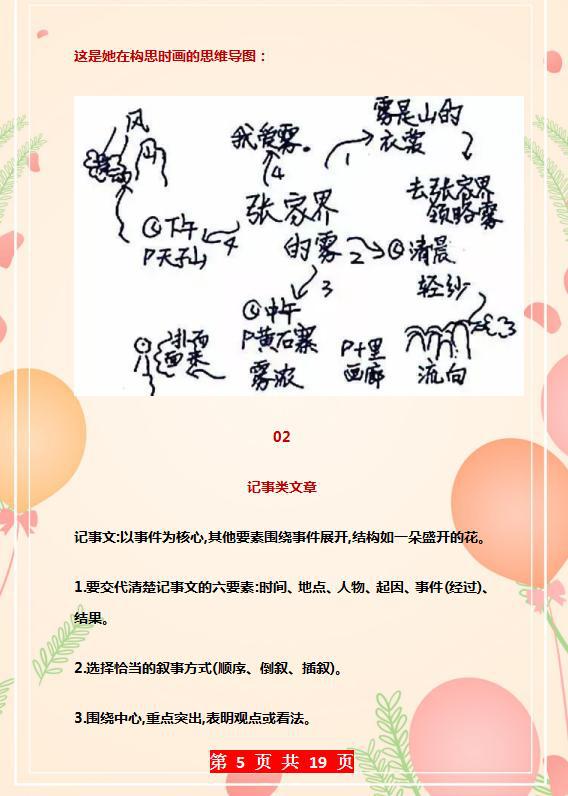 这是她在构思时画的思维导图：
风
山
我爱雾。
4
1
雾是山的
衣裳
去张家界
领略雾
张家界
的雾
2
清晨
轻纱
下午
P天子山
4
3
中午
P黄石寨
雾浓
扑面
而来
P十里
画廊
流向
02
记事类文章
记事文:以事件为核心,其他要素围绕事件展开,结构如一朵盛开的花。
1.要交代清楚记事文的六要素:时间、地点、人物、起因、事件(经过)、
结果。
2.选择恰当的叙事方式(顺序、倒叙、插叙)。
3.围绕中心,重点突出,表明观点或看法。
第 5 页 共 19 页